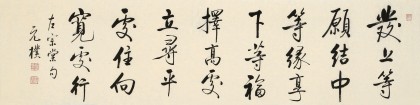 發上等
願結中
等緣享
下等福
擇高處
立尋平
處住向
寬處行
左宗棠句
元樸